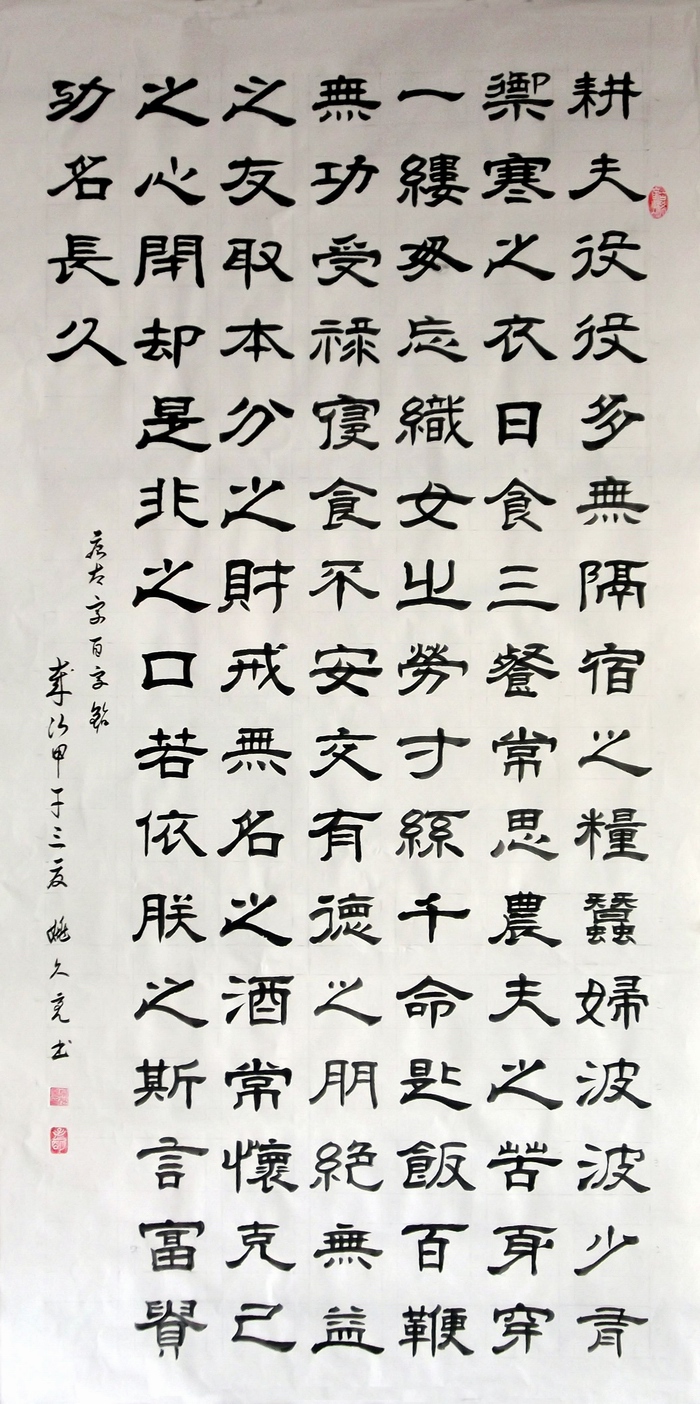 耕夫役役多無隔宿之糧蠶婦波波少有
禦寒之衣日食三餐常思農夫之苦身穿
一縷毋忘織女之勞寸絲千命匙飯百鞭
無功受祿寢食不安交有德之朋絕無益
之友取本分之財戒無名之酒常懷克己
之心閉却是非之口若依朕之斯言富貴
功名長久
唐太宗百字銘
歲次甲午三夏 姚久亮书